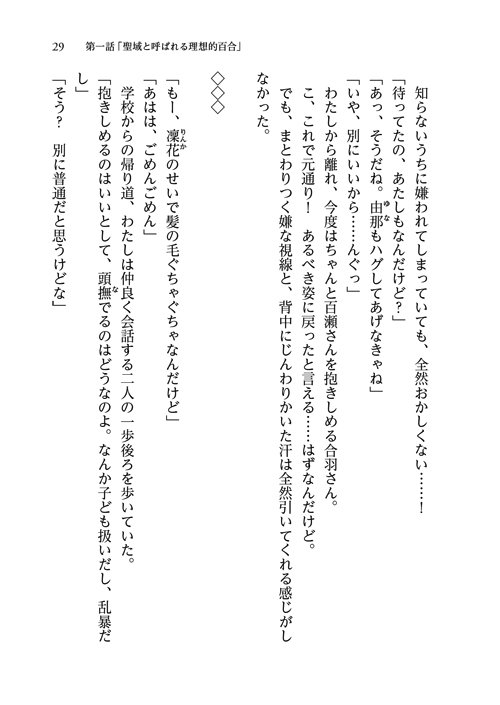 29　第一話「聖域と呼ばれる理想的百合」
知らないうちに嫌われてしまっていても、全然おかしくない……！
「待ってたの、あたしもなんだけど？」
「あっ、そうだね。由那もハグしてあげなきゃね」
「いや、別にいいから……んぐっ」
わたしから離れ、今度はちゃんと百瀬さんを抱きしめる合羽さん。
こ、これで元通り！　あるべき姿に戻ったと言える……はずなんだけど。
でも、まとわりつく嫌な視線と、背中にじんわりかいた汗は全然引いてくれる感じがし
なかった。
◇◇◇
「もー、凜花のせいで髪の毛ぐちゃぐちゃなんだけど」
「あはは、ごめんごめん」
学校からの帰り道、わたしは仲良く会話する二人の一歩後ろを歩いていた。
「抱きしめるのはいいとして、頭撫でるのはどうなのよ。なんか子ども扱いだし、乱暴だ
し」
「そう？　別に普通だと思うけどな」